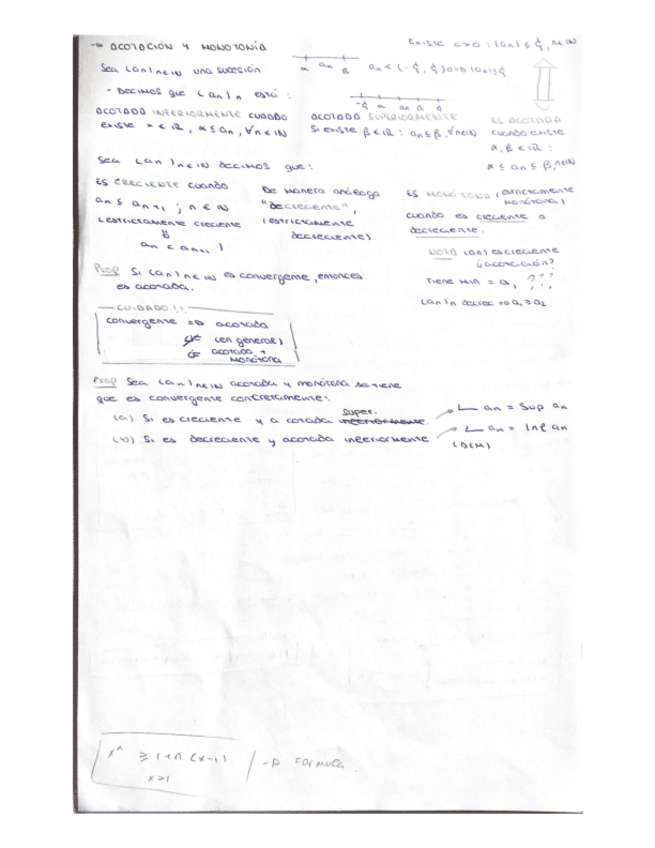 → ACOTACIÓN Y MONOTONÍA
EXISTE C>0 : |an| ≤ ξ, n∈ℕ
Sea (an)n∈ℕ una sucesión
α an β
an ∈ (-ξ, ξ) ⇔ |an| ≤ ξ
- Decimos que (an)n está:
-ξ α an β ξ
ACOTADA INFERIORMENTE CUANDO
existe α ∈ ℝ, α ≤ an, ∀n∈ℕ
ACOTADA SUPERIORMENTE
Si existe β∈ℝ : an ≤ β, ∀n∈ℕ
ES ACOTADA
cuando existe
α, β ∈ ℝ :
α ≤ an ≤ β, n∈ℕ
Sea (an)n∈ℕ decimos que:
ES CRECIENTE cuando
an ≤ an+1 ; n ∈ ℕ
(estrictamente creciente
an < an+1)
De manera análoga
"decreciente",
(estrictamente
decreciente)
ES MONÓTONA (estrictamente
monótona)
cuando es creciente o
decreciente.
NOTA (an) es creciente
¿acotación?
Tiene min = a1 ???
(an)n decrec ⇒ a1 ≥ a2
Prop Si (an)n∈ℕ es convergente, entonces
es acotada.
CUIDADO!!
convergente ⇒ acotada
⇍ (en general)
⇐ acotada +
monótona
Prop Sea (an)n∈ℕ acotada y monótona se tiene
que es convergente concretamente:
(a) Si es creciente y acotada super. inferiormente. → L an = Sup an
(b) Si es decreciente y acotada inferiormente → L an = Inf an
(DEM)
x^n ≥ 1+n(x-1) | → FORMULA
x≥1